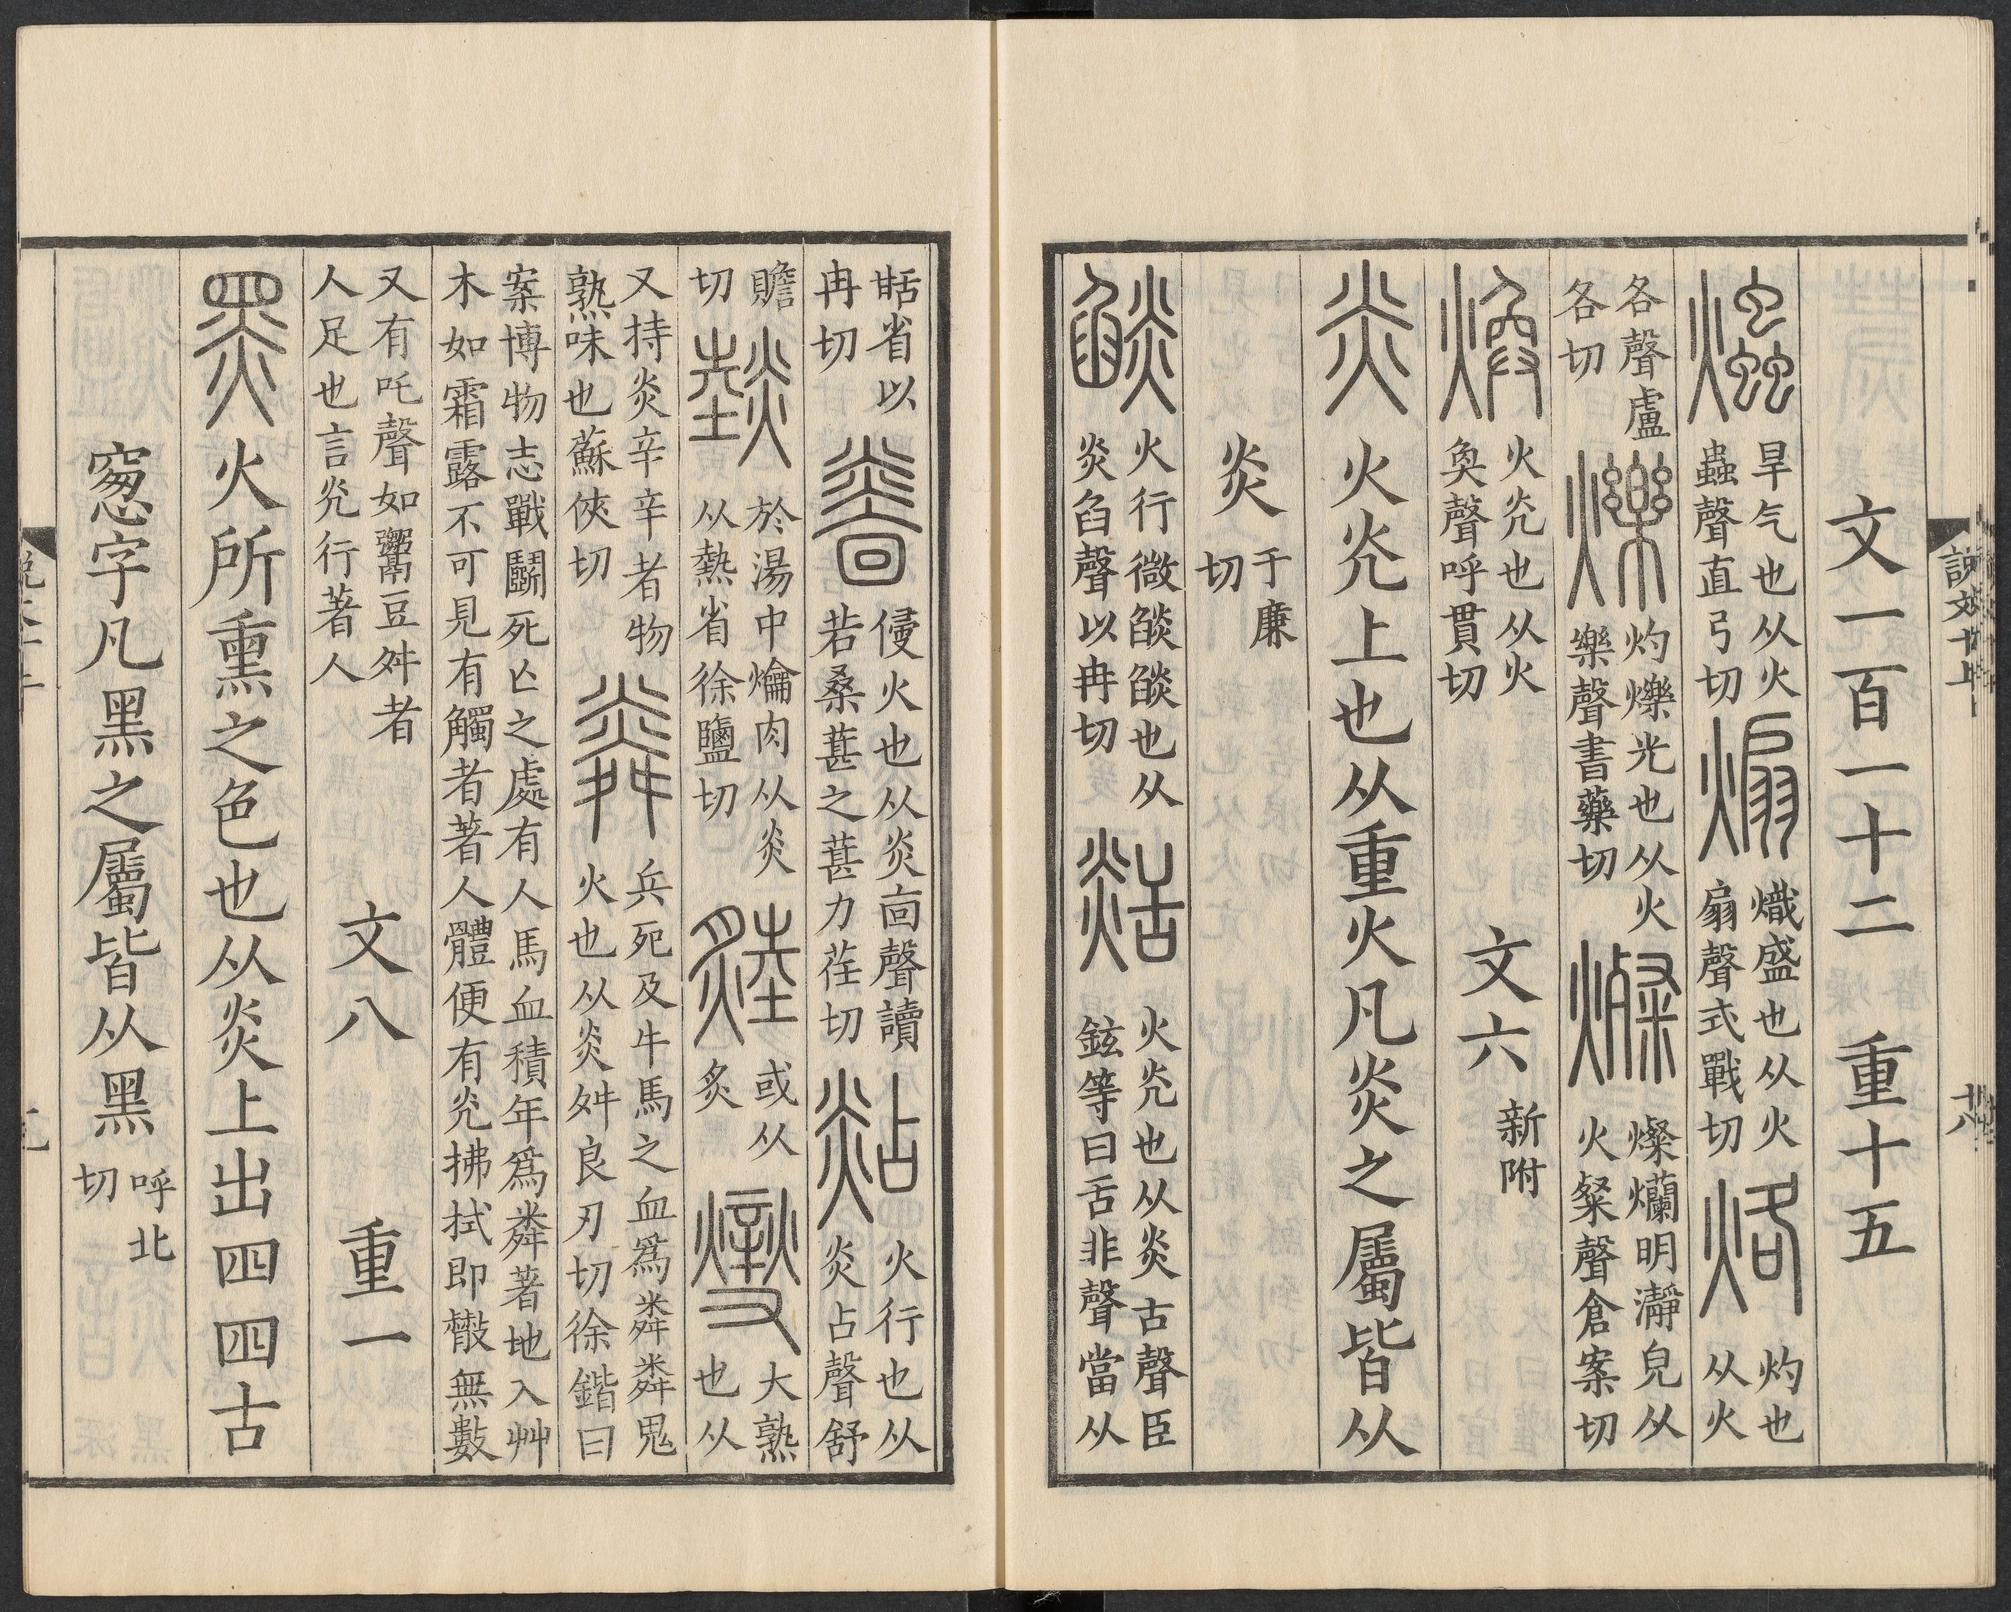 說文十上
十八
文一百一十二 重十五
爞旱气也从火蟲聲直弓切 煽熾盛也从火扇聲式戰切 烙灼也从火
各聲盧各切 爍灼爍光也从火樂聲書藥切 燦燦爛明瀞皃从火粲聲倉案切
煥火灮也从火奐聲呼貫切 文六 新附
炎火灮上也从重火凡炎之屬皆从
炎于廉切
燄火行微燄燄也从炎臽聲以冉切 㷿火灮也从炎𠯑聲臣鉉等曰舌非聲當从
甛省以冉切 㐭侵火也从炎㐭聲讀若桑葚之葚力荏切 煔火行也从炎占聲舒
贍切 燅於湯中爚肉从炎从熱省徐鹽切 錴或从炙 燮大熟也从
又持炎辛辛者物熟味也蘇俠切 粦兵死及牛馬之血爲粦粦鬼火也从炎舛良刃切徐鍇曰
案博物志戰鬭死亾之處有人馬血積年爲粦著地入艸木如霜露不可見有觸者著人體便有灮拂拭即㪚無數
又有吒聲如鬻豆舛者人足也言灮行著人 文八 重一
黑火所熏之色也从炎上出四四古
窻字凡黑之屬皆从黑呼北切